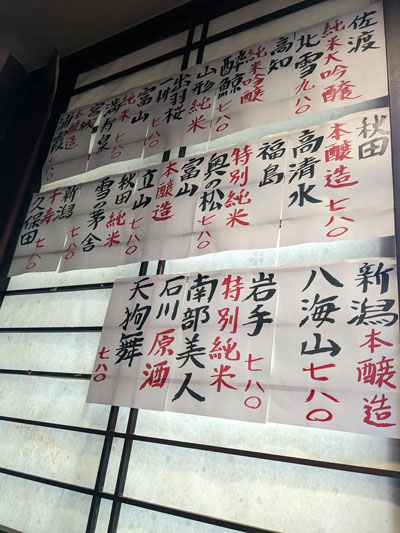 佐渡
純米大吟醸
北雪 九八〇
高知
純米吟醸
酔鯨 七八〇
山形 純米
出羽桜
一耕 七八〇
富山 純米
満寿泉 七八〇
宮城
本醸造
浦霞
秋田
本醸造
高清水 七八〇
福島
特別純米
奥の松 七八〇
富山
本醸造
立山 七八〇
秋田 純米
雪の茅舎
新潟 七八〇
千寿
久保田 七八〇
新潟 本醸造
八海山 七八〇
岩手 七八〇
特別純米
南部美人
石川 原酒
天狗舞
七八〇